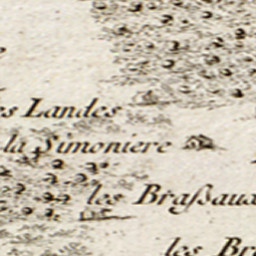 es Landes
la Simoniere
les Braßaux
les Br